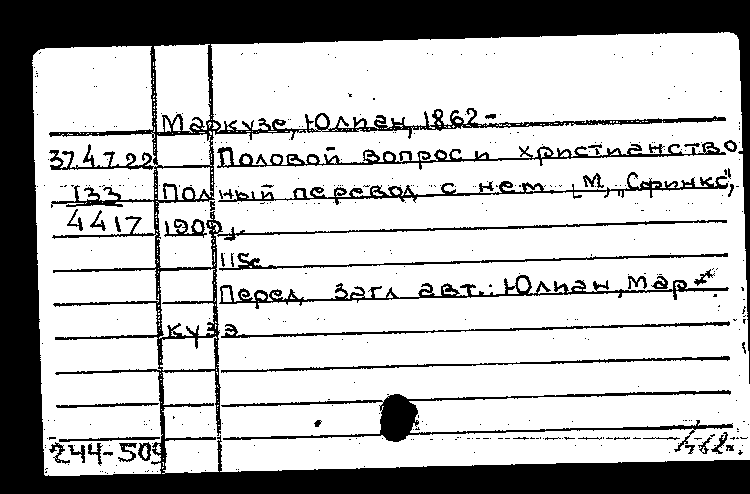 Маркузе, Юлиан, 1862-
37.4.7.22 Половой вопрос и христианство.
133 Полный перевод с нем. [М, "Сфинкс",
4417 1909].
115с.
Перед загл авт.: Юлиан, Мар
куза
244-509